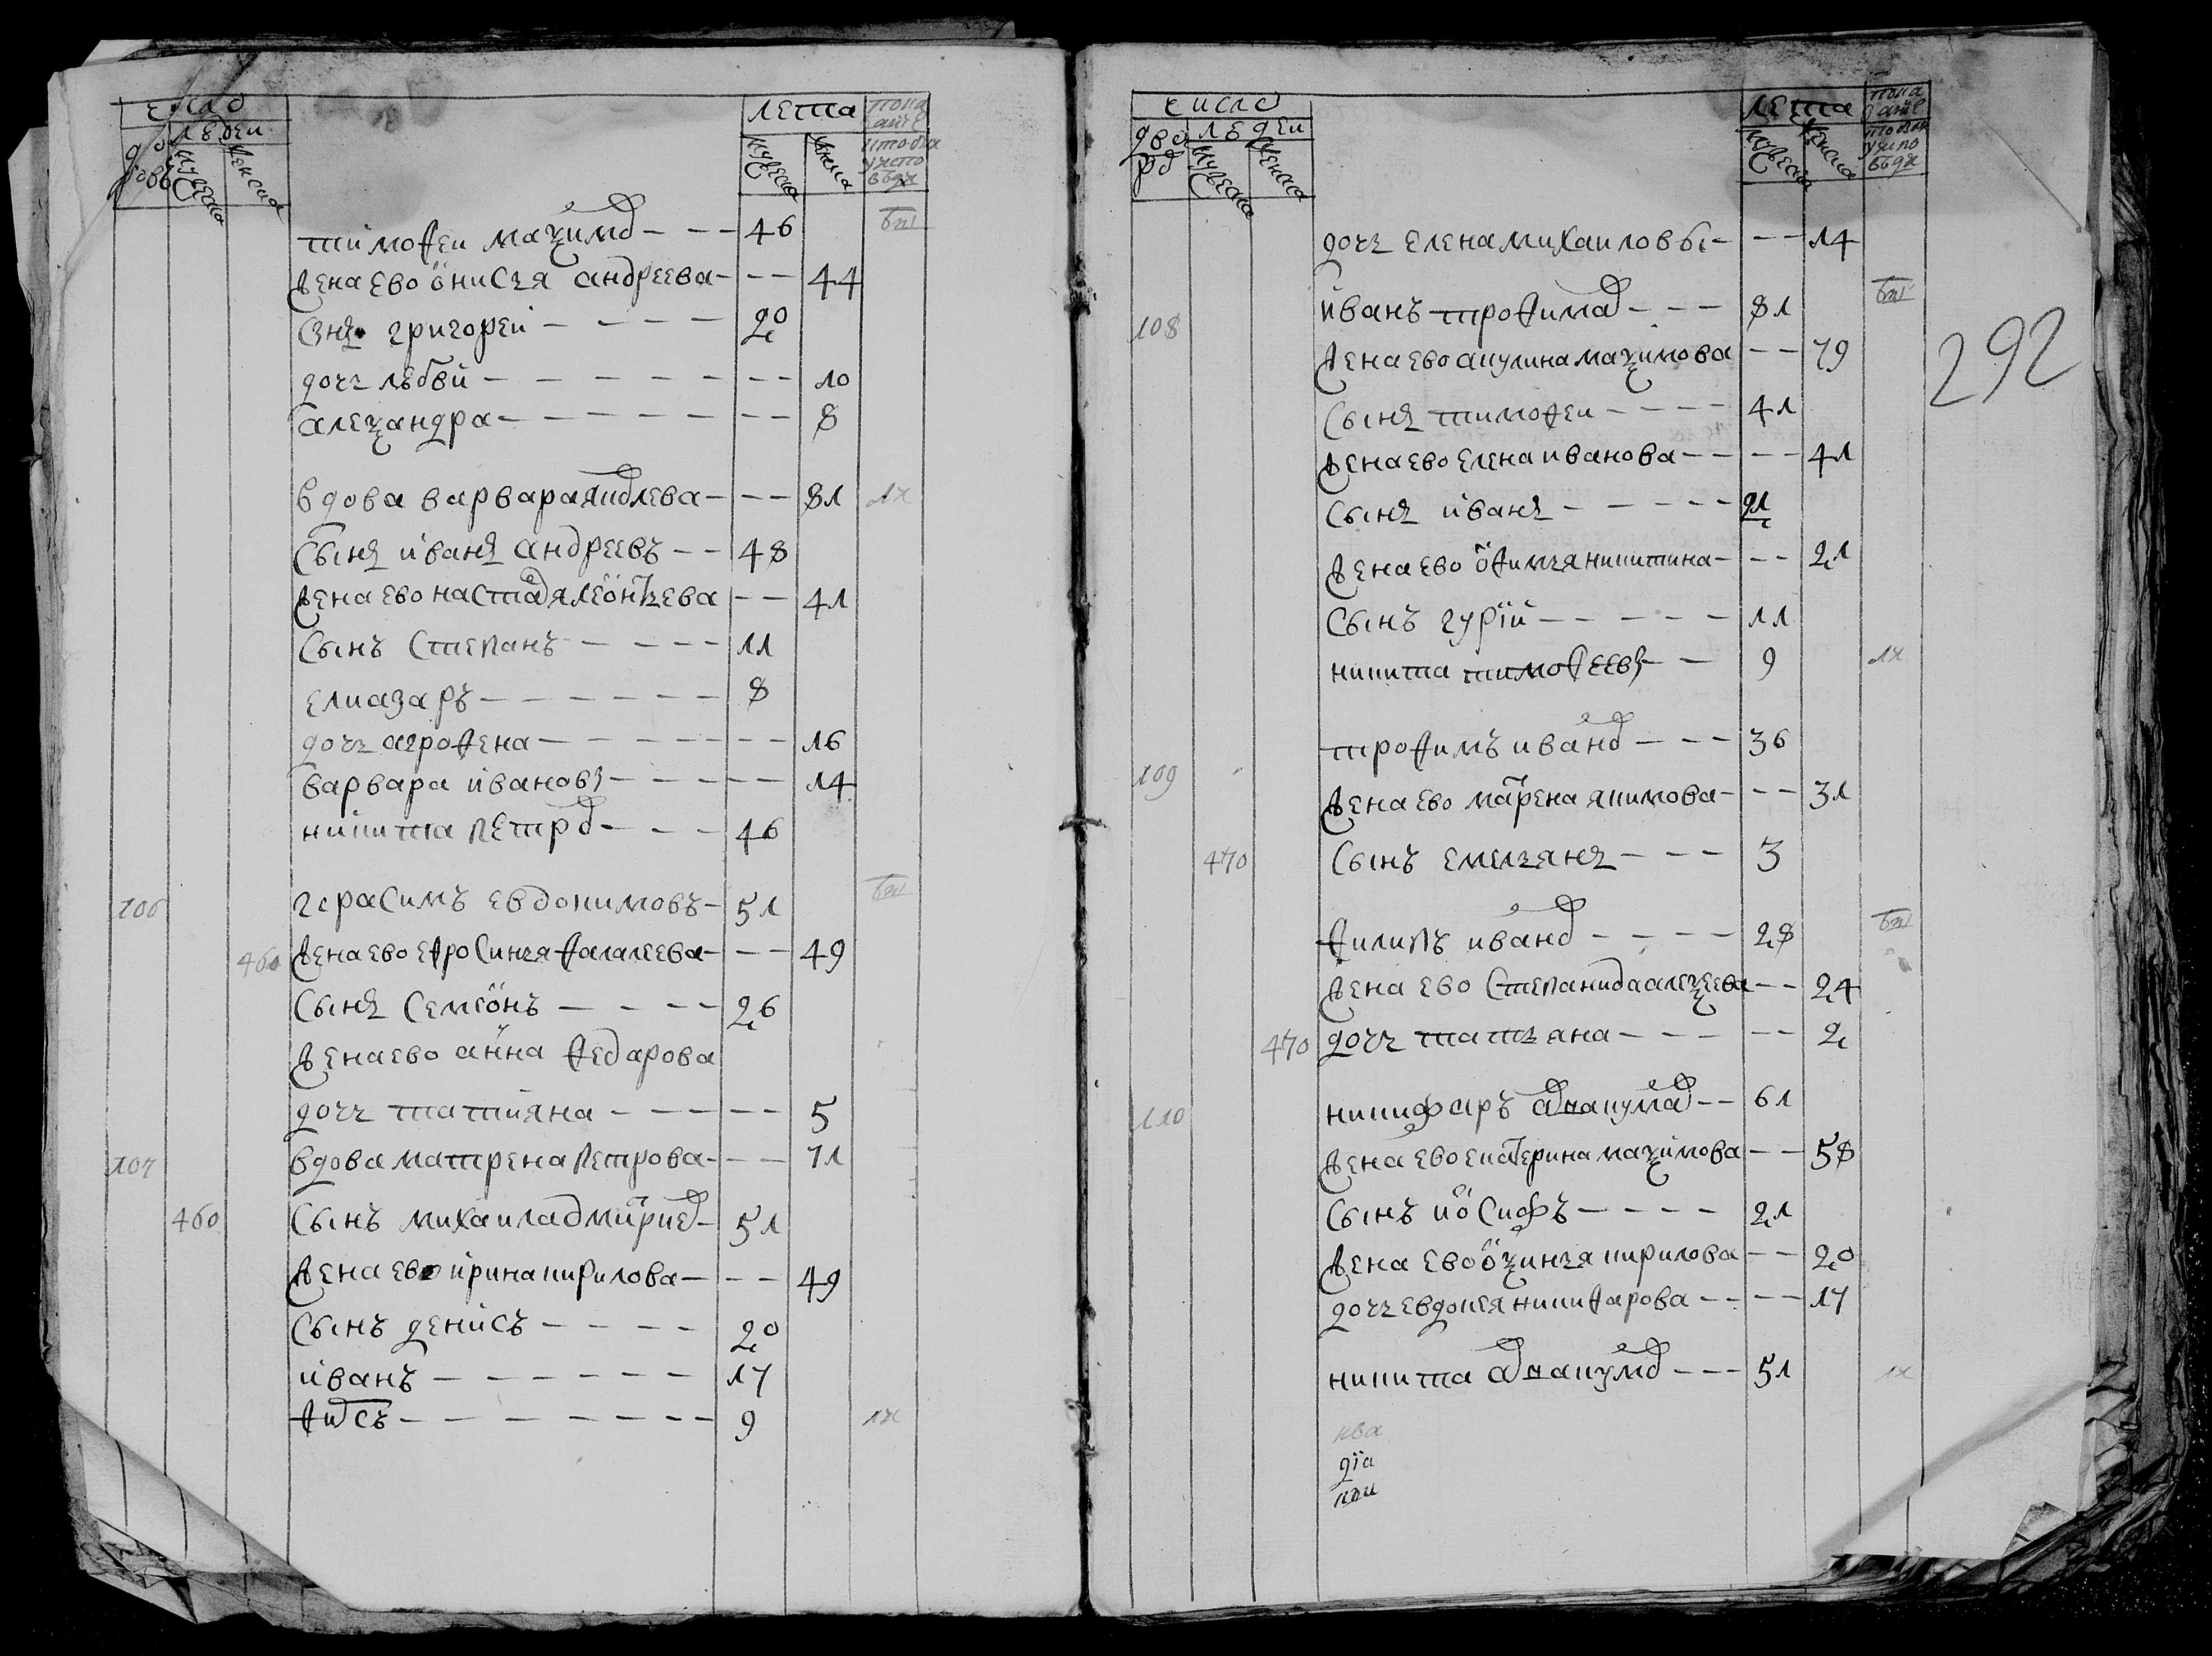 число
людеи
дворовъ
мужеска
женска
лета
мужеска
женска
тимофеи маѯимо 46 бы
жена ево онисья андреева 44
снъ григореи 20
дочь любви 10
алеѯандра 8
вдова варвара яковлева 81 их
сынъ иванъ андреевъ 48
жена ево настася леонтьева 41
сынъ степанъ 11
елиазаръ 8
дочь агрофена 16
варвара ивановы 14
никита петро 46
106 герасимъ евдокимовъ 51 бы
460 жена ево ефросинья фалалеева 49
сынъ семеонъ 26
жена ево анна федарова
дочь татияна 5
107 вдова матрена петрова 71
460 сынъ михаила дмитрие 51
жена ево ирина кирилова 49
сынъ денисъ 20
иванъ 17
9 их
число
двора
людеи
мужеска
женска
лета
мужеска
женска
292
дочь елена михаиловы 14
108 иванъ трофимо 81 бы
жена ево акулина маѯимова 79
сынъ тимофеи 41
жена ево елена иванова 41
сынъ иванъ 21
жена ево офимья никитина 21
сынъ гурiи 11
никита тимофеевы 9 их
109 трофимъ ивано 36
жена ево марена якимова 31
470 сынъ емельянъ 3
филипъ ивано 28 бы
жена ево степанида алеѯеева 24
470 дочь татьяна 2
110 никифаръ абакумо 61
жена ево екатерина маѯимова 58
сынъ иосифъ 21
жена ево оѯинья кирилова 20
дочь евдокея никифарова 17
никита абакумо 51 их
ква
дiа
кои